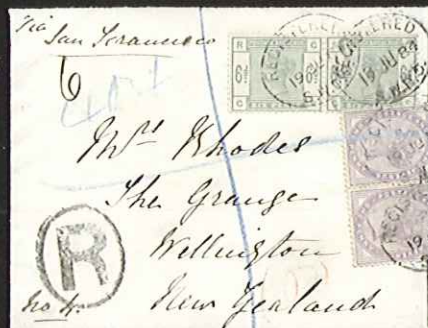 Via
San Francisco
6
REGISTERED
19 JU 84
S.W.
Mrs Rhodes
The Grange
Wellington
New Zealand
R
No 4.